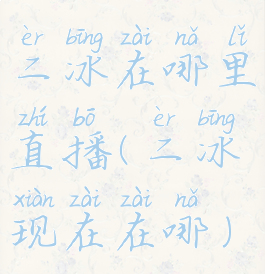 èr bīng zài nǎ lǐ
二冰在哪里
zhí bō èr bīng
直播(二冰
xiàn zài zài nǎ
现在在哪)